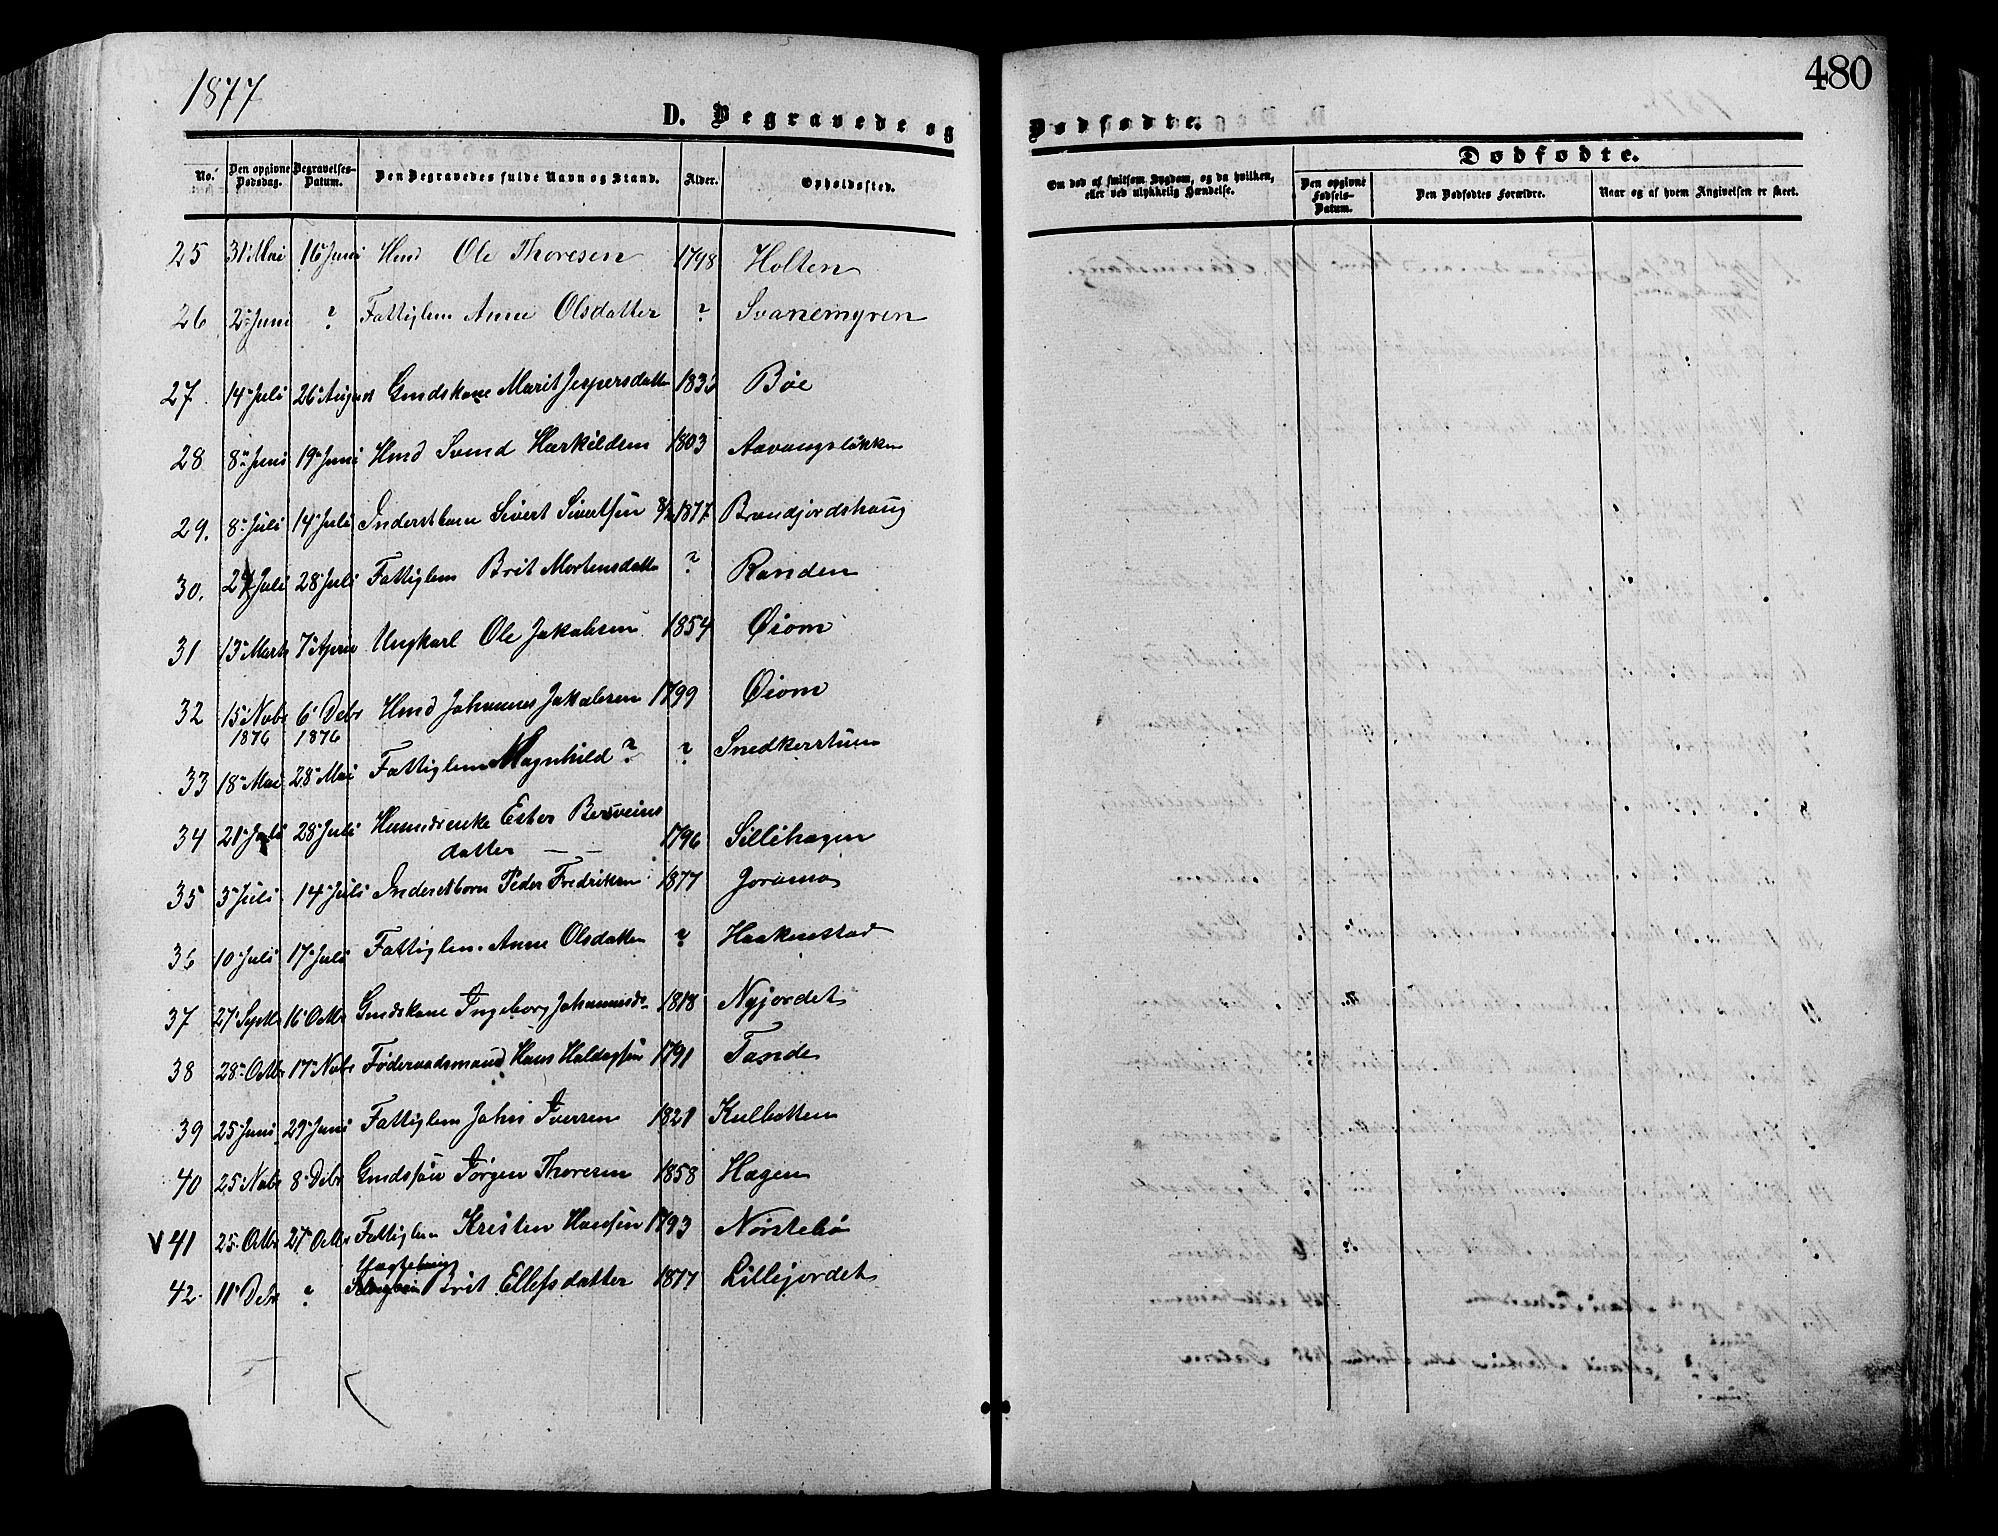 1877
480
D. Begravede og Dødfødte.
Dødfødte.
No. Den opgivne Dødsdag. Begravelses-Datum. Den Begravedes fulde Navn og Stand. Alder. Opholdssted. Om død af smitsom Sygdom, og da hvilken, eller ved ulykkelig Hændelse. Den opgivne Fødsels-Datum. Den Dødfødtes Forældre. Naar og af hvem Angivelsen er skeet.
25 31 Mai 16 Juni Hmd Ole Thoresen 1798 Holten
26 2 Juni ? Fattiglem Anne Olsdatter ? Svanemyren
27. 14 Juli 26 August Gmdskone Marit Jespersdatter Bøe
28 8 Juni 19 Juni Hmd Svend Harkildsen 1803 Aavangsløkken
29. 8 Juli 14 Juli Inderstbarn Sivert Sivertsen 1877 Brendjordshaug
30. 24 Juli 28 Juli Fattiglem Brit Mortensdatter ? Randen
31 13 Marts 7 April Ungkarl Ole Jakobsen 1854 Øiom
32 15 Nobr 6 Debr Hmd Johannes Jakobsen 1799 Øiom
1876 1876
33 18 Mai 28 Mai Fattiglem Magnhild ? ? Snedkerstuen
34 21 Juli 28 Juli Huusmdsenke Ester Bersveins
datter 1796 Sillihagen
35 3 Juli 14 Juli Inderstbarn Peder Fredriksen 1877 Joramo
36 10 Juli 17 Juli Fattiglem Anne Olsdatter ? Haakenstad
37 27 Septbr 16 Octbr Gmdskone Ingeborg Johannesd. 1818 Nyjordet
38 28 Octbr 17 Nobr Føderaadsmand Hans Haldogsen 1791 Tande
39 25 Juni 29 Juni Fattiglem John Iversen 1821 Kulbotten
40 25 Nobr 8 Debr Gmdssøn Jørgen Thoresen 1858 Hagen
V 41 25 Octbr 27 Octbr Fattiglem Kristen Hansen 1793 Nørstebø
42 11 Debr ? Brit Ellefsdatter 1877 Lillejordet